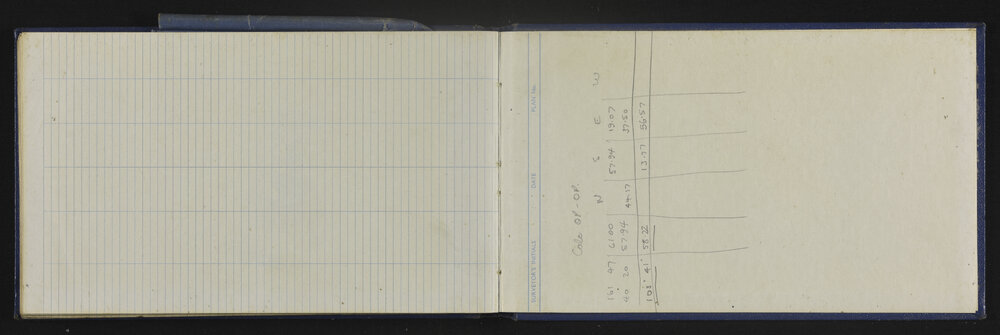 SURVEYOR'S INITIALS DATE PLAN No.
Calc OP - OP.
N S E W
161 47 61.00 57.94 19.07
40 20 57.94 44.17 37.50
103° 41' 58.22 13.77 56.57